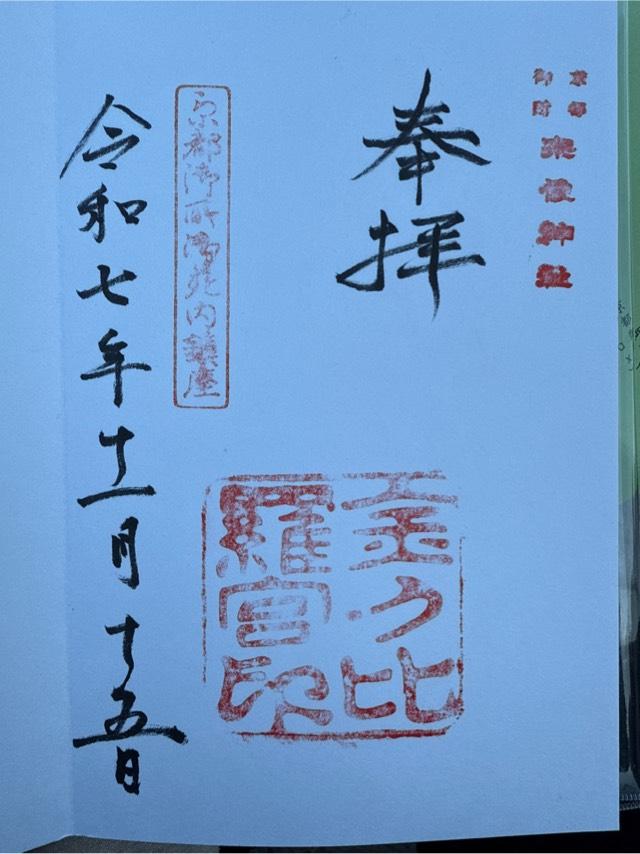 京都
御所
宗像神社
奉拝
金刀比
羅宮印
京都御所御苑内鎮座
令和七年十一月十五日